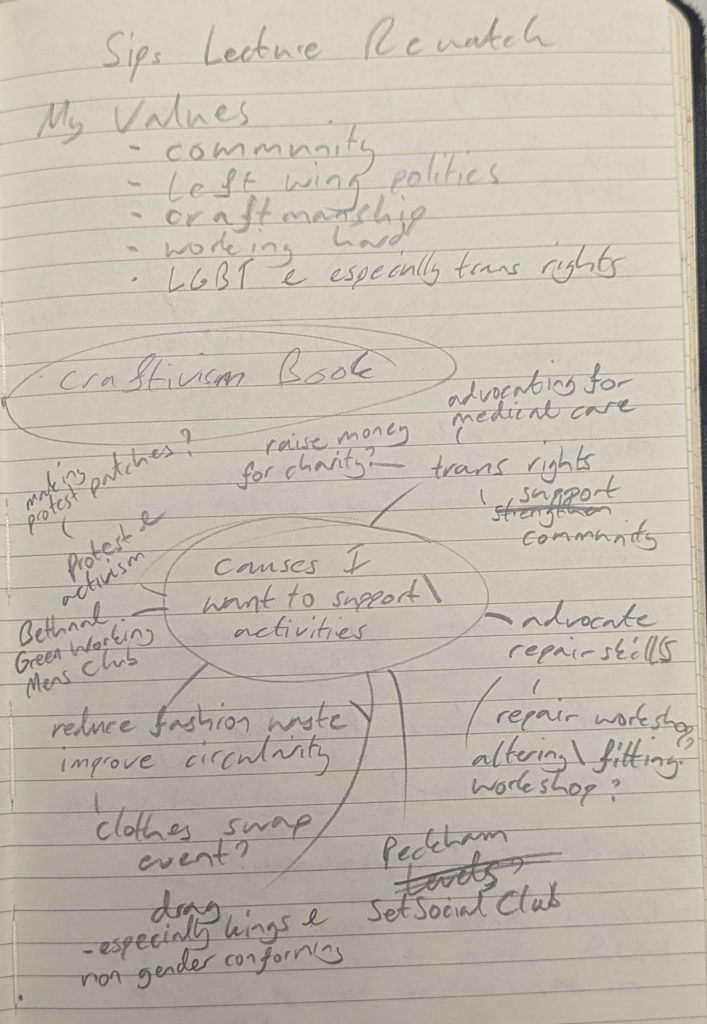 Sips Lecture Rewatch
My Values
- community
- Left wing politics
- craftmanship
- working hard
- LGBT & especially trans rights
Craftivism Book
advocating for
medical care
raise money
for charity?
trans rights
support
strengthen
community
making
protest patches?
Protest &
activism
causes I
want to support\
activities
Bethnal
Green Working
Mens Club
advocate
repair skills
repair workshop?
altering\fitting
workshop?
reduce fashion waste
improve circularity
clothes swap
event?
drag
-especially kings &
non gender conforming
Peckham
Levels,
Set Social Club